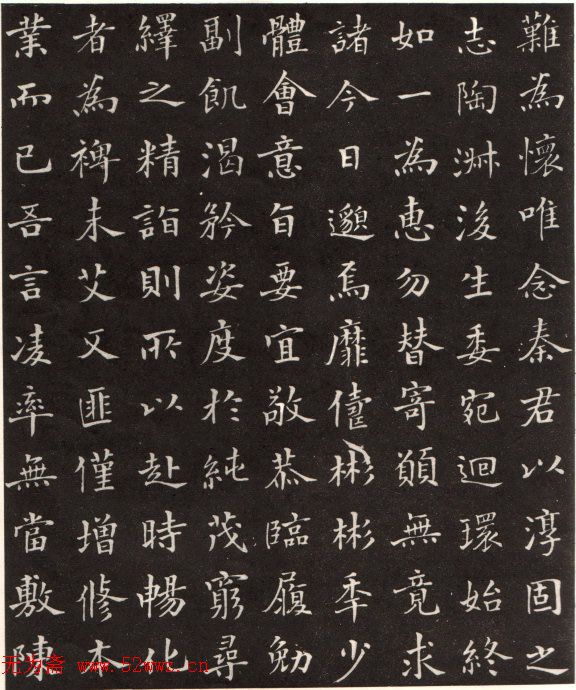 難為懷唯念秦君以淳固之
志陶淑後生委宛迴環始終
如一為惠勿替寄願無竟求
諸今日邈焉靡儔彬彬秊少
體會意旨要宜敬恭臨履勉
副飢渴矜姿度於純茂窮尋
繹之精詣則所以赴時暢化
者為裨未艾又匪僅增修本
業而已吾言凌率無當敷陳
无为斋 www.52wwz.cn